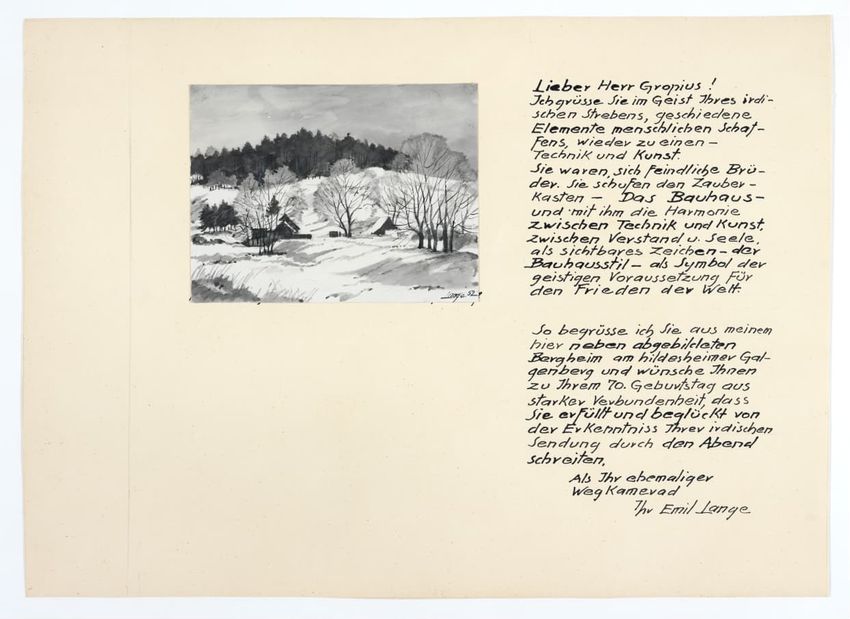 Lange 52
Lieber Herr Gropius!
Ich grüsse Sie im Geist Ihres irdi-
schen Strebens, geschiedene
Elemente menschlichen Schaf-
fens, wieder zu einen –
Technik und Kunst.
Sie waren, sich feindliche Brü-
der. Sie schufen den Zauber-
kasten – Das Bauhaus –
und mit ihm die Harmonie
zwischen Technik und Kunst,
zwischen Verstand u. Seele,
als sichtbares Zeichen – der
Bauhausstil – als Symbol der
geistigen Voraussetzung für
den Frieden der Welt.
So begrüsse ich Sie aus meinem
hier neben abgebildeten
Bergheim am hildesheimer Gal-
genberg und wünsche Ihnen
zu Ihrem 70. Geburtstag aus
starker Verbundenheit, dass
Sie erfüllt und beglückt von
der Erkenntniss Ihrer irdischen
Sendung durch den Abend
schreiten.
Als Ihr ehemaliger
Wegkamerad
Ihr Emil Lange